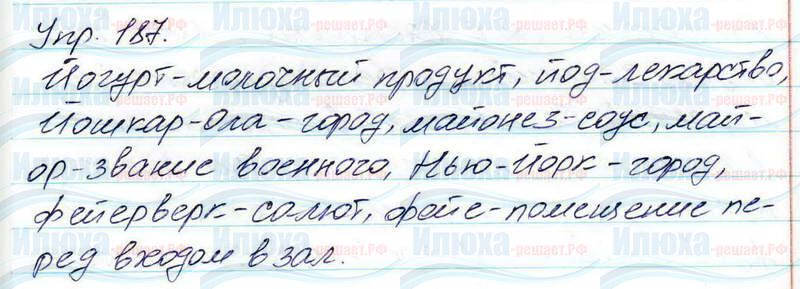 Упр. 187.
Йогурт-молочный продукт, йод-лекарство,
Йошкар-Ола-город, майонез-соус, май-
ор-звание военного, Нью-Йорк-город,
фейерверк-салют, фойе-помещение пе-
ред входом в зал.